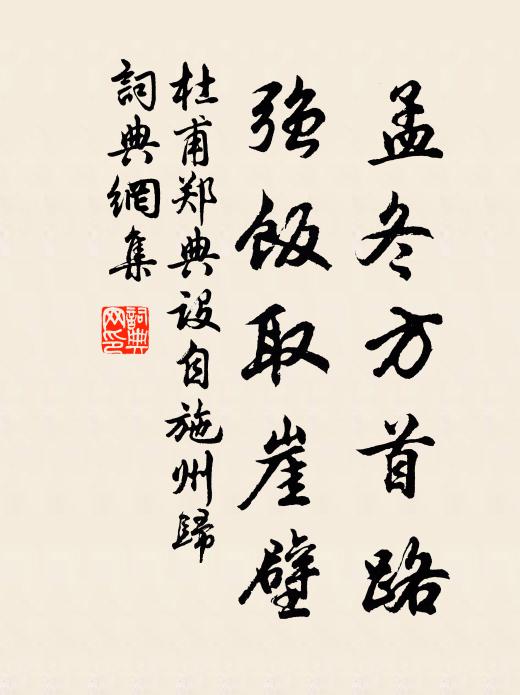 孟冬方首路
强飯取崖壁
杜甫郑典设自施州歸
詞典網集
詞典网印